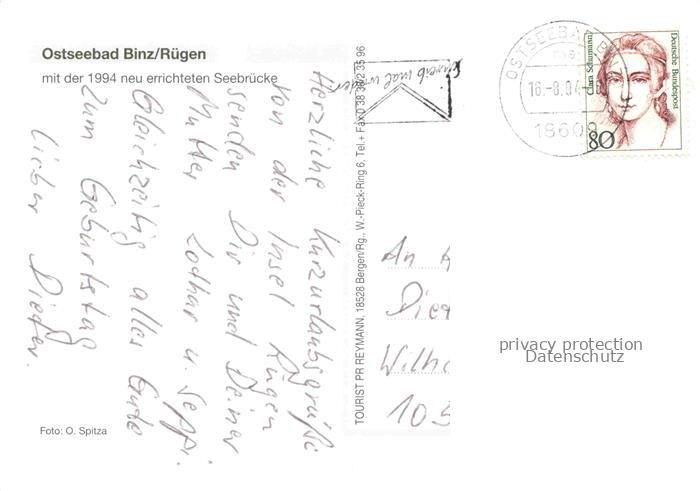 Ostseebad Binz/Rügen
mit der 1994 neu errichteten Seebrücke
Herzliche Kurzurlaubsgrüße
von der Insel Rügen
senden Dir und Deiner
Mutter Lothar u. Seppi.
Gleichzeitig alles Gute
zum Geburtstag
lieber Dieter.
Foto: O. Spitza
TOURIST PR REYMANN, 18528 Bergen/Rg., W.-Pieck-Ring 6, Tel.+ Fax 0 38 38/2 35 96
Schreib mal wieder
OSTSEEBAD
16.-8.94
18609
Clara Schumann
Deutsche Bundespost
80
An
Diet
Wilh
105
privacy protection
Datenschutz